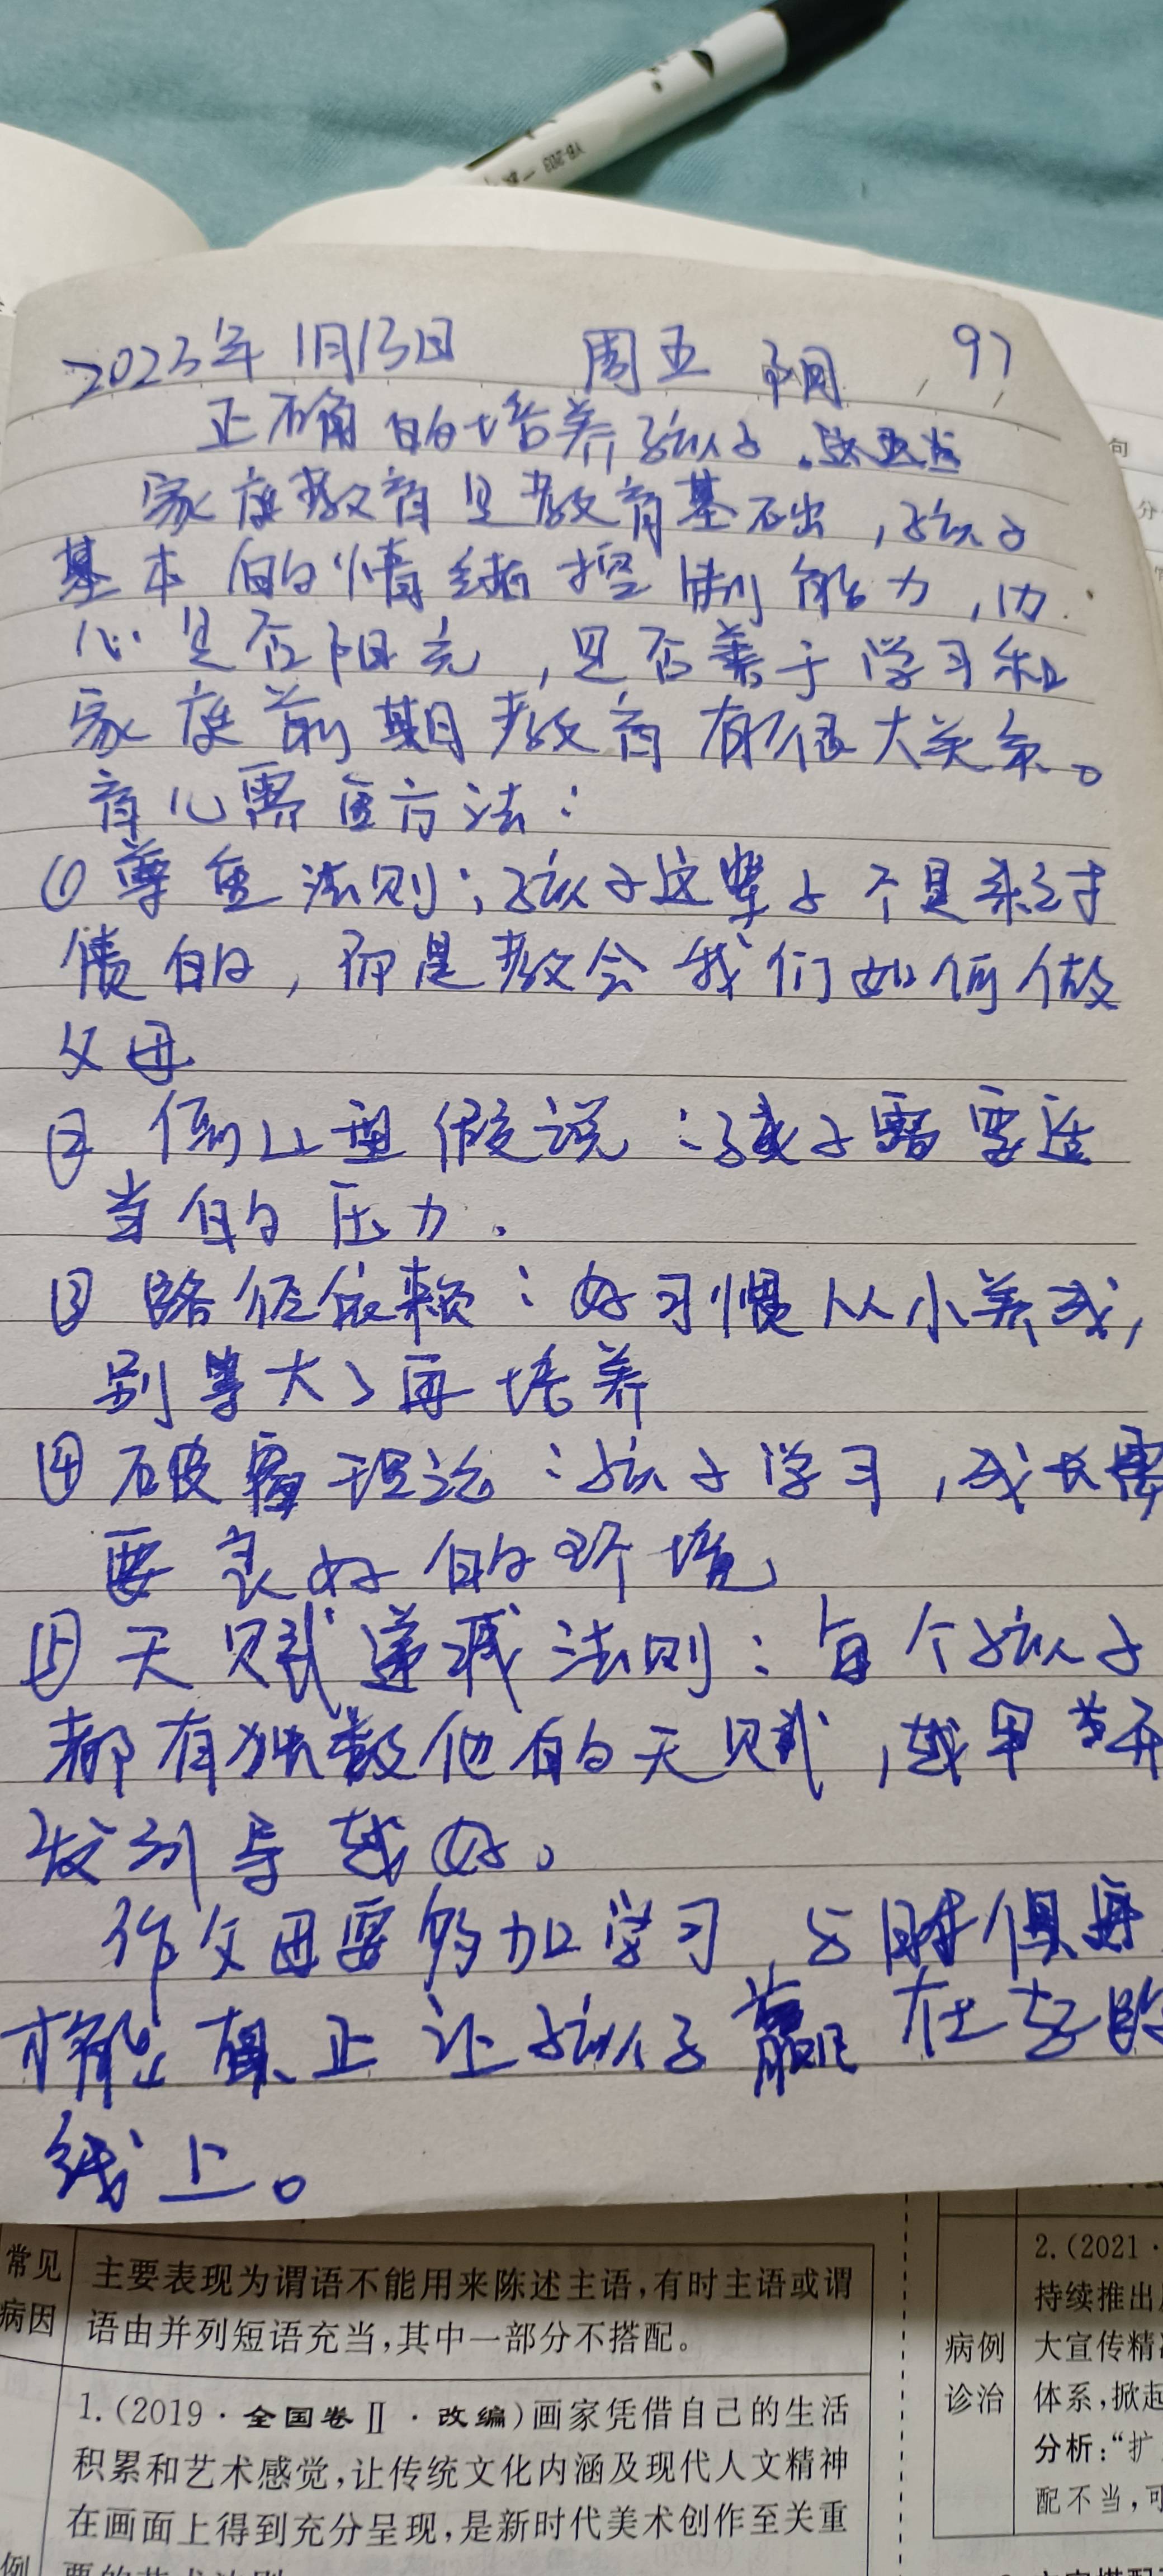 YB-203
2023年1月13日 周五 阴 97
正确的培养孩子.
家庭教育是教育基础,孩子
基本的情绪控制能力,内
心是否阳光,是否善于学习和
家庭前期教育有很大关系。
育儿需宜方法:
① 尊重法则:孩子这辈子不是来讨
债的,而是教会我们如何做
父母
② 倒U型假说:孩子需要适
当的压力.
③ 路径依赖:好习惯从小养成,
别等大了再培养
④ 破窗理论:孩子学习,成长需
要良好的环境
⑤ 天赋递减法则:每个孩子
都有独数他的天赋,越早开
发引导越好。
作父母要够加学习,与时俱
才能真正让孩子赢在起跑
线上。
常见
病因
主要表现为谓语不能用来陈述主语,有时主语或谓
语由并列短语充当,其中一部分不搭配。
1.(2019·全国卷Ⅱ·改编)画家凭借自己的生活
积累和艺术感觉,让传统文化内涵及现代人文精神
在画面上得到充分呈现,是新时代美术创作至关重
例
病例
诊治
2.(2021·
持续推出
大宣传精
体系,掀起
分析:“扩
配不当,可
句
分